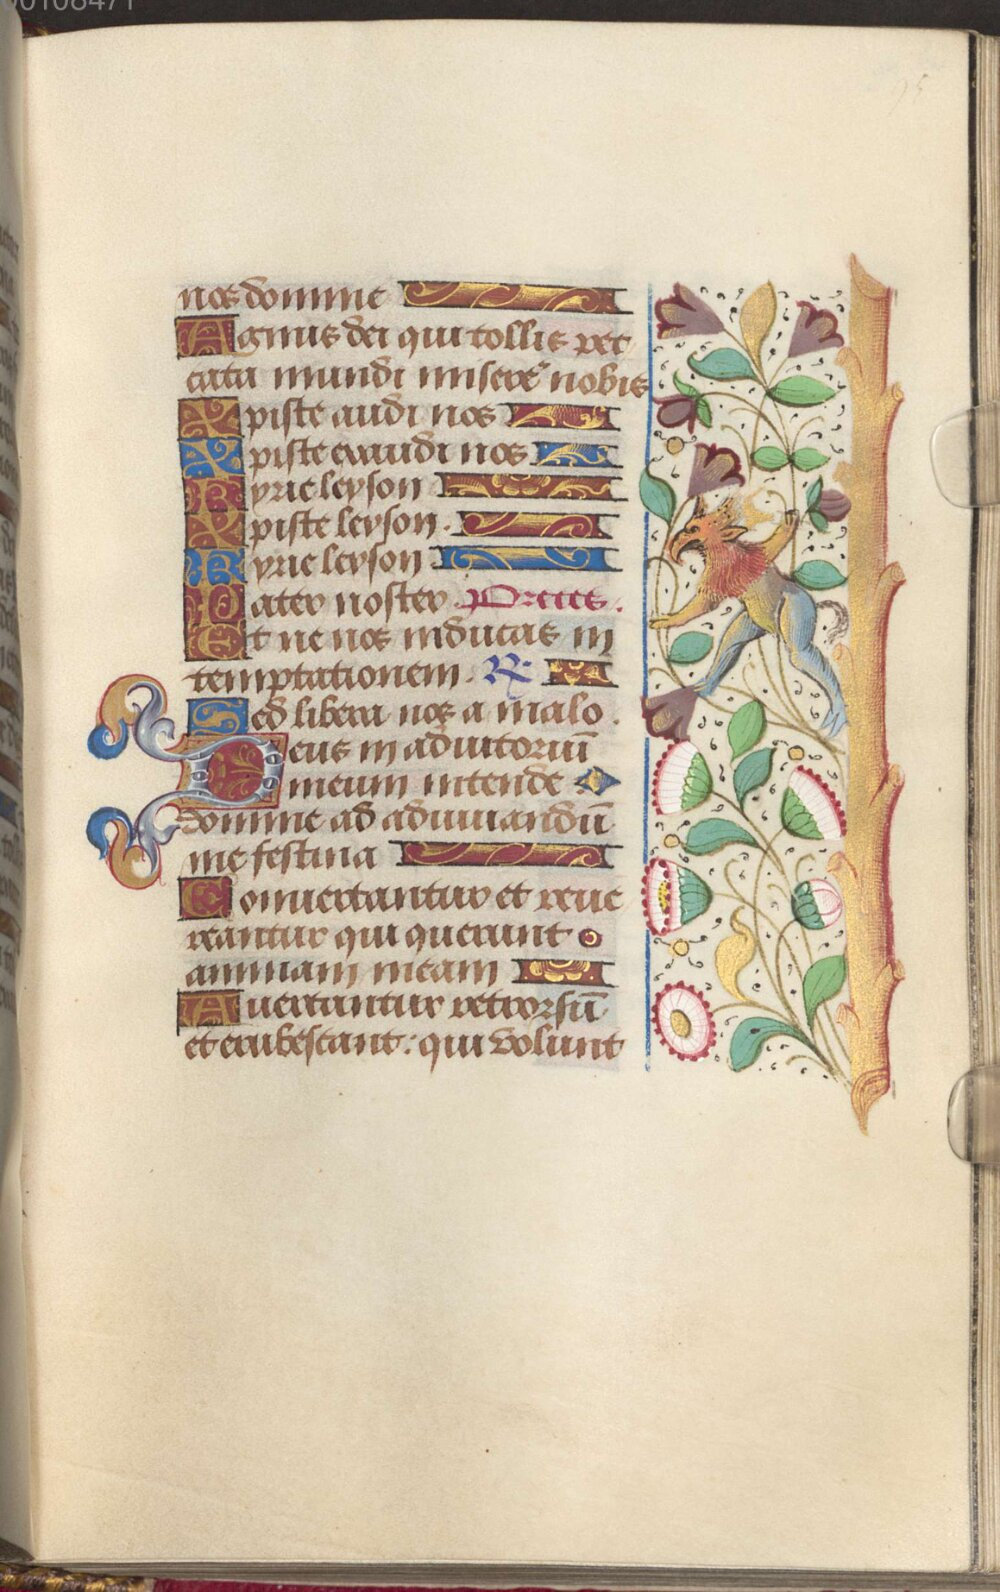 00108471
95
nos domine
Agnus dei qui tollis pec
cata mundi misere nobis
Xpiste audi nos
Xpiste exaudi nos
Kyrie leyson
Xpiste leyson.
Kyrie leyson
Pater noster. Preces.
Et ne nos inducas in
temptationem. R
Sed libera nos a malo.
Deus in adiutoriū
meum intende
domine ad adiuuandū
me festina
Conuertantur et reue
reantur qui querunt
animam meam
Auertantur retrorsū
et erubescant: qui volunt